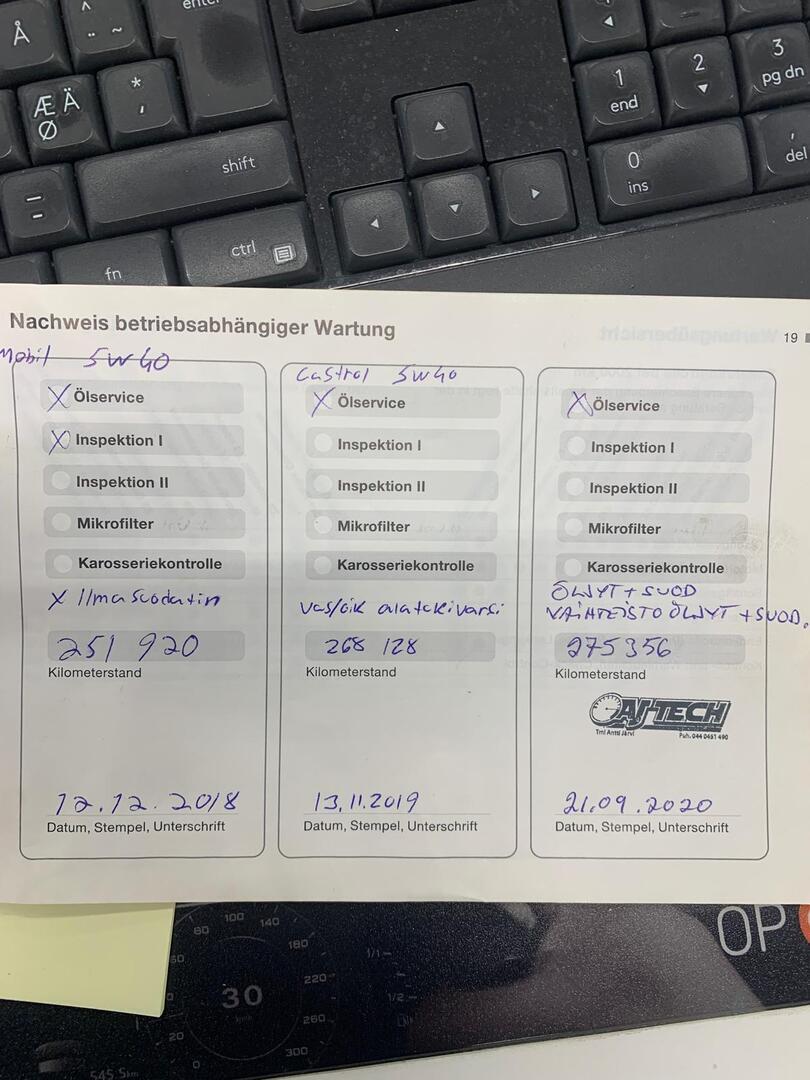 Å
^
¨ ~
enter
Æ Ä
Ø
*
'
shift
ctrl
fn
1
end
2
3
pg dn
0
ins
,
del
Nachweis betriebsabhängiger Wartung
19
Mobil 5W40
Ölservice
Inspektion I
Inspektion II
Mikrofilter
Karosseriekontrolle
X Ilmasuodatin
251 920
Kilometerstand
12.12.2018
Datum, Stempel, Unterschrift
Castrol 5W40
Ölservice
Inspektion I
Inspektion II
Mikrofilter
Karosseriekontrolle
vas/oik alatukivarsi
268 128
Kilometerstand
13.11.2019
Datum, Stempel, Unterschrift
Ölservice
Inspektion I
Inspektion II
Mikrofilter
Karosseriekontrolle
ÖLJYT + SUOD
VAIHTEISTO ÖLJYT + SUOD.
275356
Kilometerstand
AJ-TECH
Tmi Antti Järvi
Puh. 044 0451 490
21.09.2020
Datum, Stempel, Unterschrift
OP
100
140
60
180
220
260
300
20
0
30
km/h
1/1
1/2
545.5km